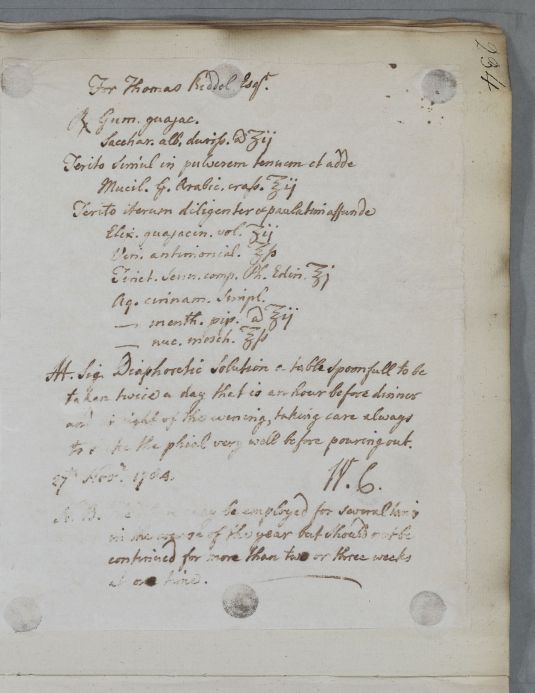 234
For Thomas Riddel Esqr.
℞ Gum. guajac.
Sacchar. alb. duriss. a ʒij
Terito simul in pulverem tenuem et adde
Mucil. G. Arabic. crass. ℥ij
Terito iterum diligenter & paulatim affunde
Elix. guajacin. vol. ℥ij
Vin. antimonial. ℥ſs
Tinct. Senn. comp. Ph. Edin. ℥j
Aq. cinnam. simpl.
— menth. pip. a ℥ij
— nuc. mosch. ℥ſs
M. Sig. Diaphoretic Solution a table spoonfull to be
taken twice a day that is an hour before dinner
and eight of the evening, taking care always
to the phial very well before pouring out.
27th Novr. 1784.
W. C.
N. B. may be employed for several times
in the course of the year but should not be
continued for more than two or three weeks
at one time.